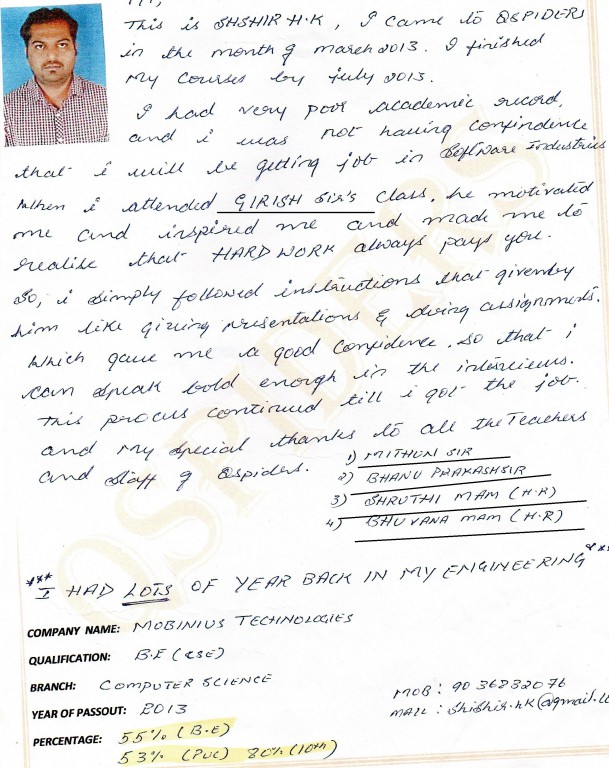 Hi,
This is SHSHIR H.K, I came to QSPIDERS
in the month of march 2013. I finished
My Courses by july 2013.
I had very poor academic record,
and i was not having confindence
that i will be getting job in Software Industries
When i attended GIRISH Sir's Class, he motivated
me and inspired me and made me to
realise that HARD WORK always pays you.
So, i simply followed instructions that givenby
him like giving presentations & doing assignments.
Which gave me a good Confidence. so that i
can speak bold enough in the interviews.
This process continued till i got the job.
and my special thanks to all the Teachers
and staff of Qspiders.
1) MITHUN SIR
2) BHANU PRAKASH SIR
3) SHRUTHI MAM (H.R)
4) BHUVANA MAM (H.R)
*** I HAD LOTS OF YEAR BACK IN MY ENGINEERING ***
COMPANY NAME: MOBINIUS TECHNOLOGIES
QUALIFICATION: B.E (CSE)
BRANCH: COMPUTER SCIENCE
YEAR OF PASSOUT: 2013
MOB: 9036832076
MAIL: Shishir.hk@gmail.
PERCENTAGE: 55% (B.E)
53% (PUC) 80% (10th)
QSPIDERS